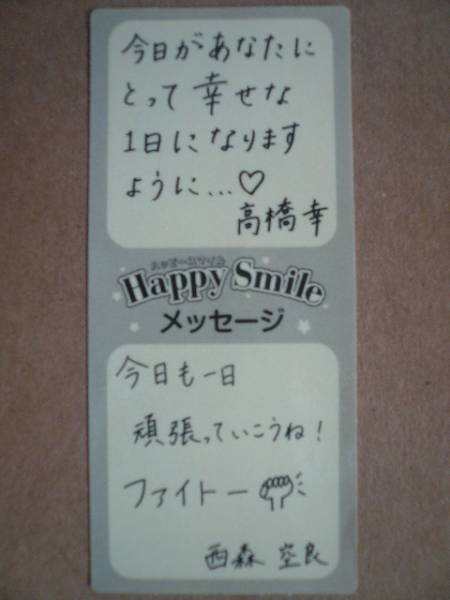 今日があなたに
とって幸せな
1日になります
ように…♡
高橋幸
Happy Smile
メッセージ
今日も一日
頑張っていこうね!
ファイトー
西森 空良